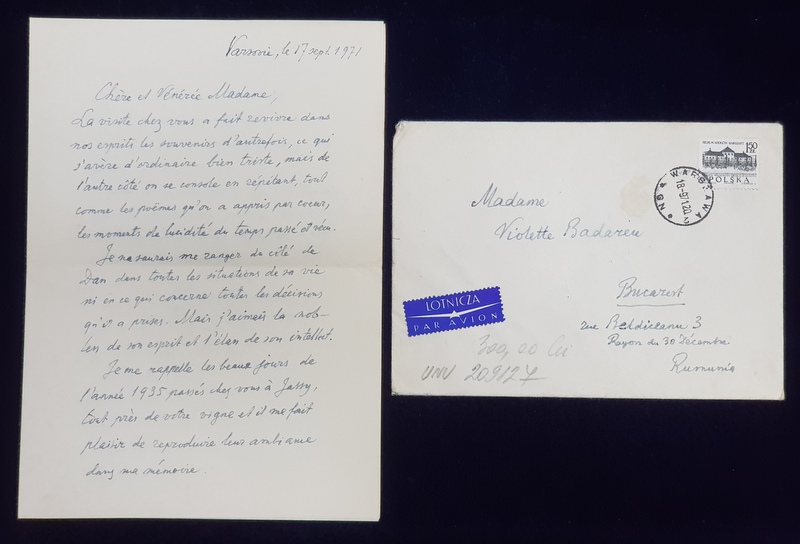 Varsovie, le 17 sept. 1971
Chère et Vénérée Madame,
La visite chez vous a fait revivre dans
nos esprits les souvenirs d'autrefois, ce qui
s'avère d'ordinaire bien triste, mais de
l'autre côté on se console en répétant, tout
comme les poèmes qu'on a appris par coeur,
les moments de lucidité du temps passé et vécu.
Je ne saurais me ranger du côté de
Dan dans toutes les situations de sa vie
ni en ce qui concerne toutes les décisions
qu'il a prises. Mais j'aimais la nob-
lesse de son esprit et l'élan de son intellect.
Je me rappelle les beaux jours de
l'année 1935 passés chez vous à Jassy,
tout près de votre vigne et il me fait
plaisir de reproduire leur ambiance
dans ma mémoire.
1,50 ZŁ
POLSKA
WARSZAWA
18-971.20
Madame
Violette Badareu
Bucarest
rue 3
Rayon du 30 Décembre
Rumunia
LOTNICZA
PAR AVION
300,00 lei
UNV 209127